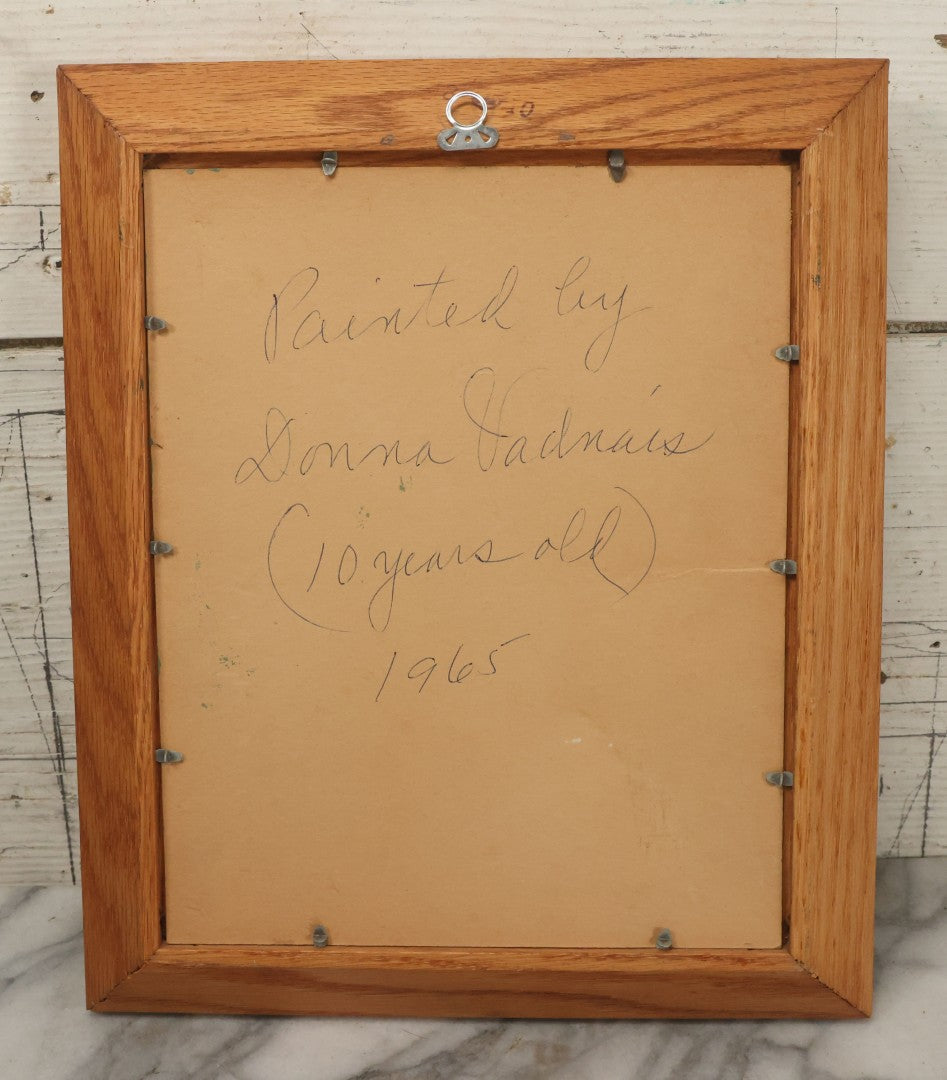 Painted by
Donna Vadnais
(10 years old)
1965